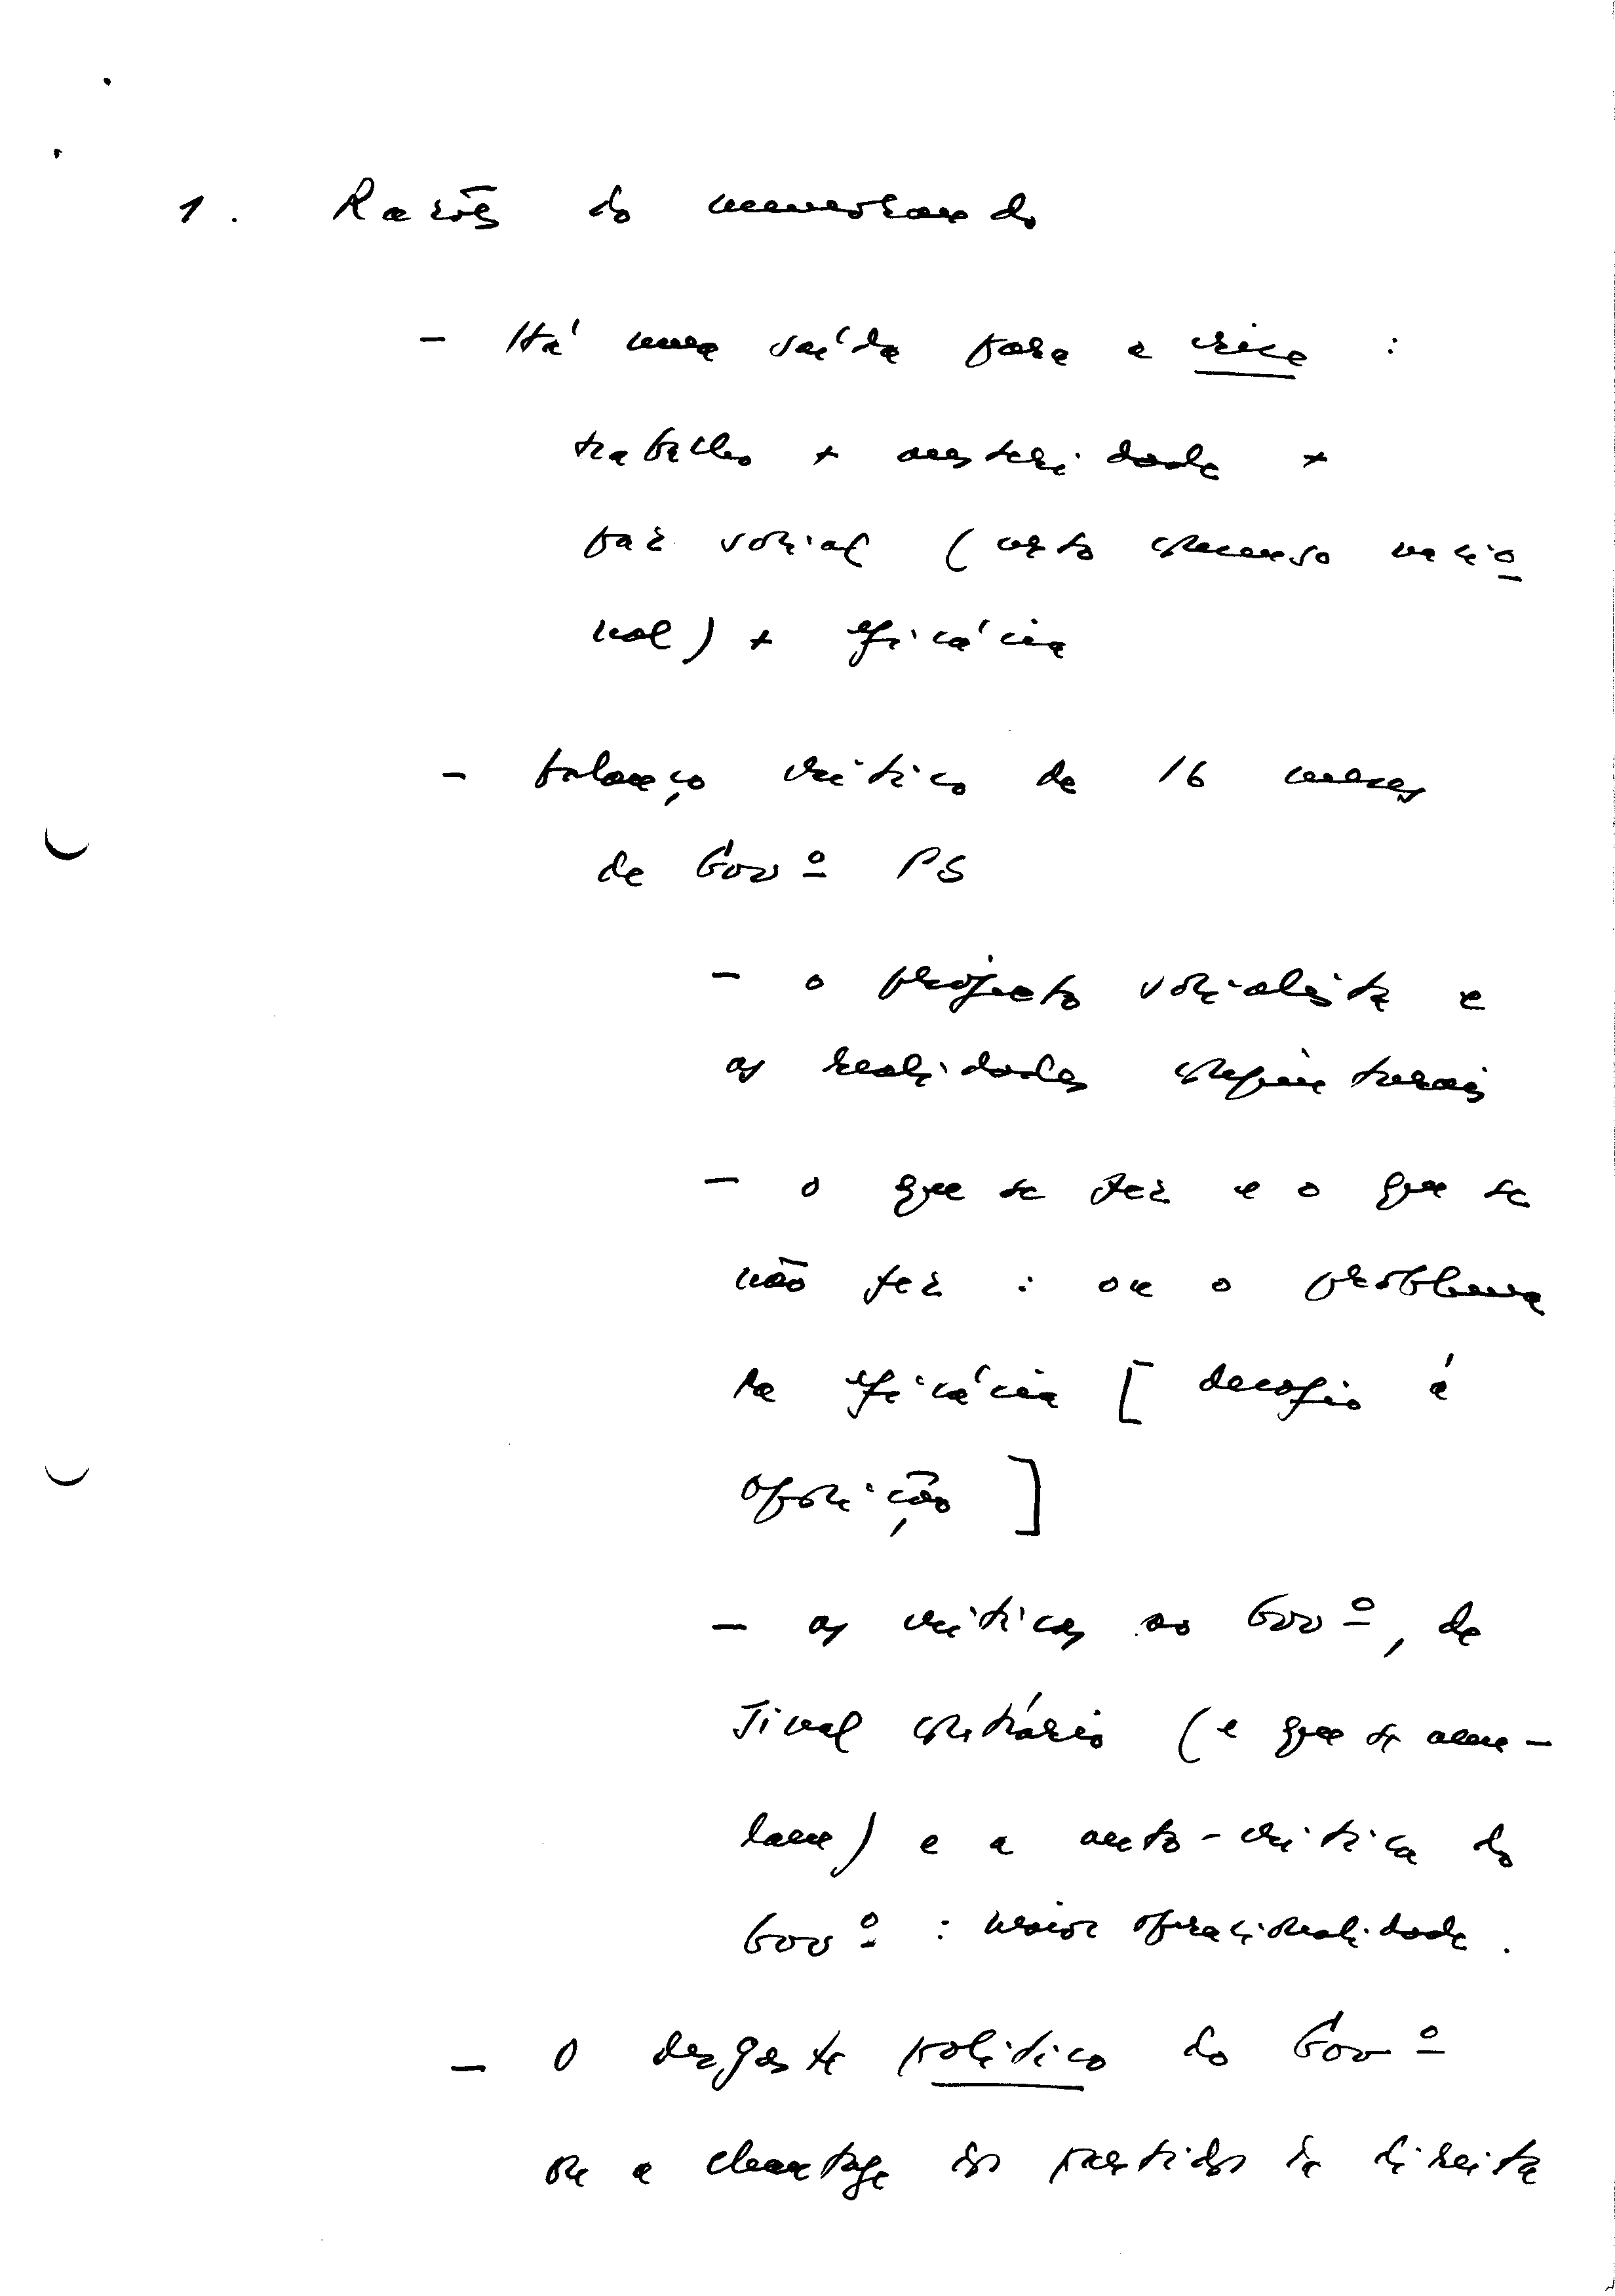 1. Razões do memorando
- Há uma saída para a crise :
trabalho + austeridade +
paz social (certo consenso nacio
nal) + eficácia
- balanço crítico de 16 meses
de Govº PS
- o projecto socialista e
as realidades conjunturais
- o que se fez e o que se
não fez : ou o problema
da eficácia [ desafio á
oposição ]
- as críticas ao Govº, de
sinal contrário (e que se anu-
lam) e a auto-crítica do
Govº : maior operacionalidade.
- O desgaste político do Govº
ou a chantage dos partidos da direita